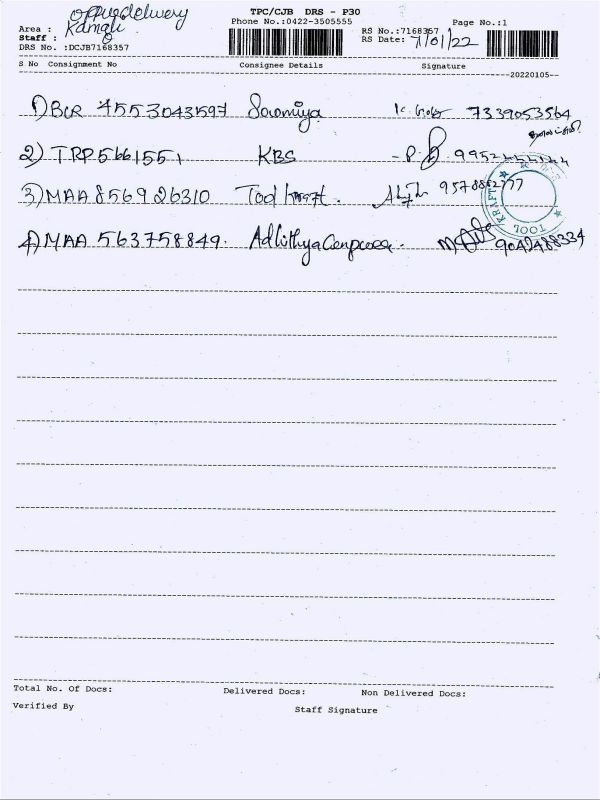 office delivery
TPC/CJB DRS - P30
Area : Kamali
Phone No.:0422-3505555
Page No.:1
Staff :
RS No.:7168357
DRS No. :DCJB7168357
RS Date: 7/01/22
S No Consignment No Consignee Details Signature
20220105
1) BCR 4553043597 Sowmiya 7339053564
2) TRP5661551 KBS - P.
3) MAA 856926310 Tool Kraft.
TOOL KRAFT
4) MAA 563758849. 9042488334
Total No. Of Docs: Delivered Docs: Non Delivered Docs:
Verified By Staff Signature